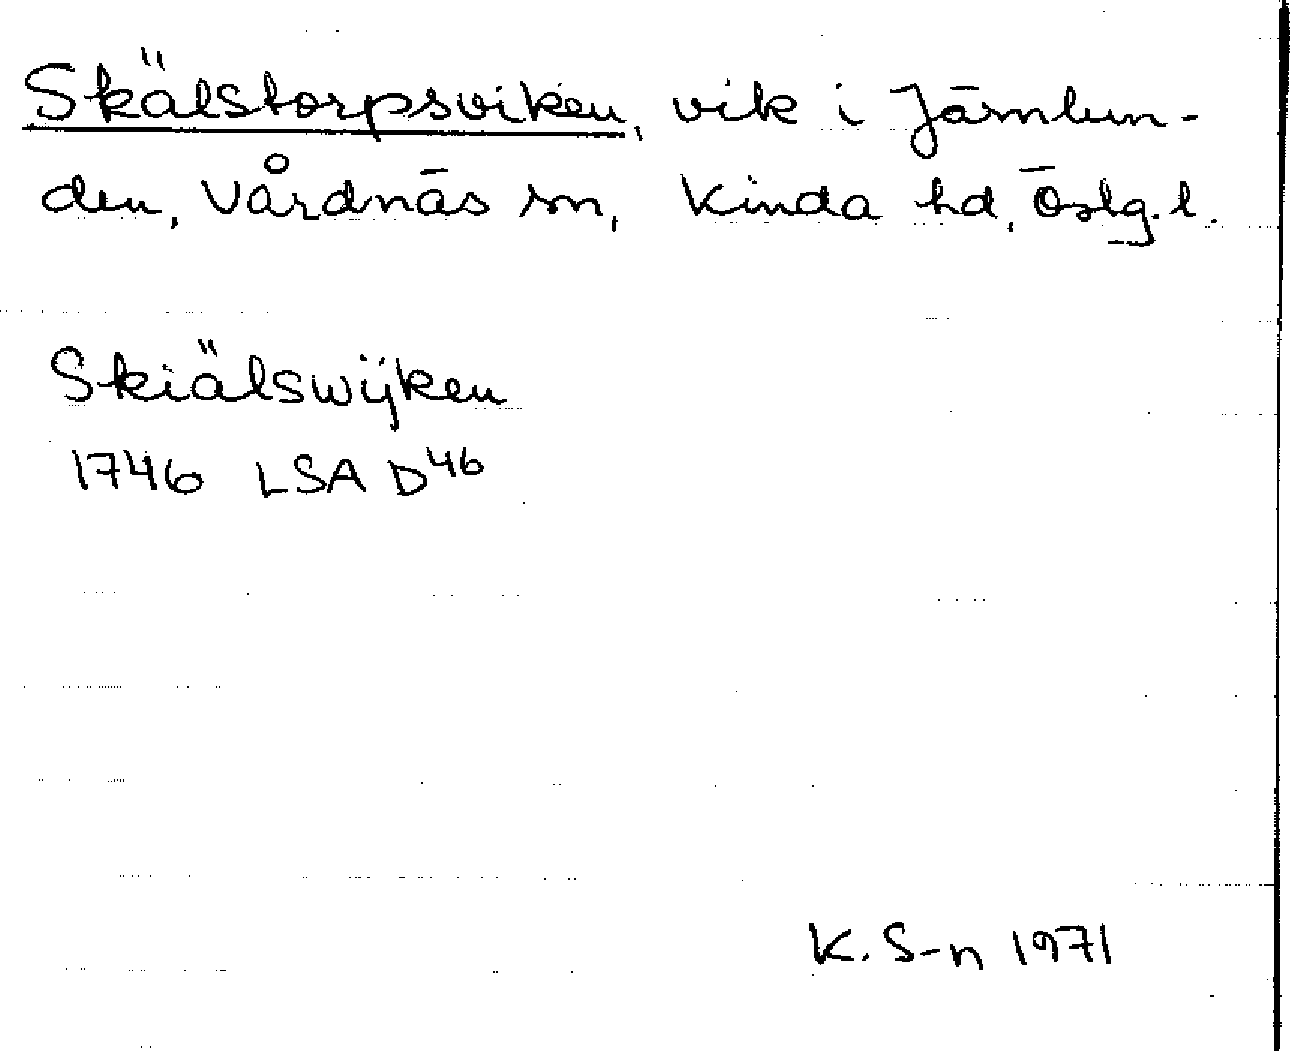 Skälstorpsviken, vik i Järnlun-
den, Vårdnäs sn, Kinda hd, Östg. l.
Skiälswijken
1746 LSA D46
K. S-n 1971